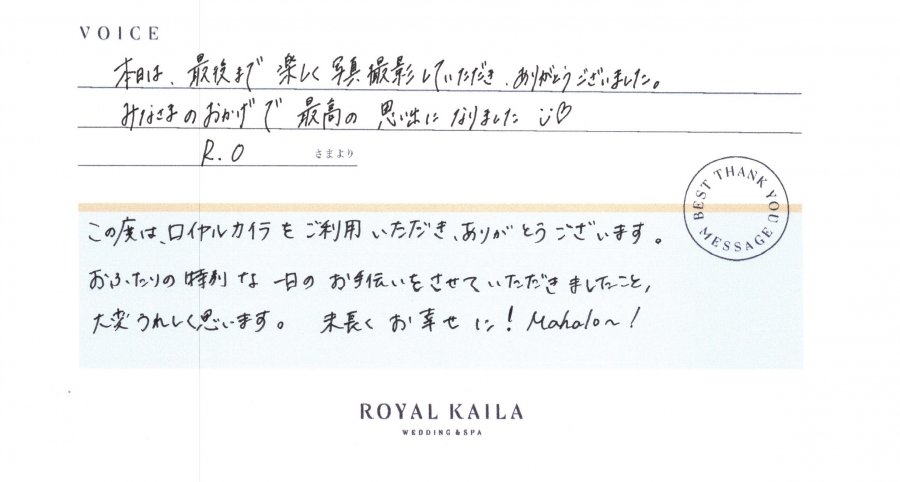 VOICE
本日は、最後まで楽しく写真撮影していただき、ありがとうございました。
みなさまのおかげで最高の思い出になりました
R.O さまより
BEST THANK YOU MESSAGE
この度は、ロイヤルカイラをご利用いただき、ありがとうございます。
おふたりの特別な一日のお手伝いをさせていただきましたこと,
大変うれしく思います。 末長くお幸せに! Mahalo〜!
ROYAL KAILA
WEDDING & SPA